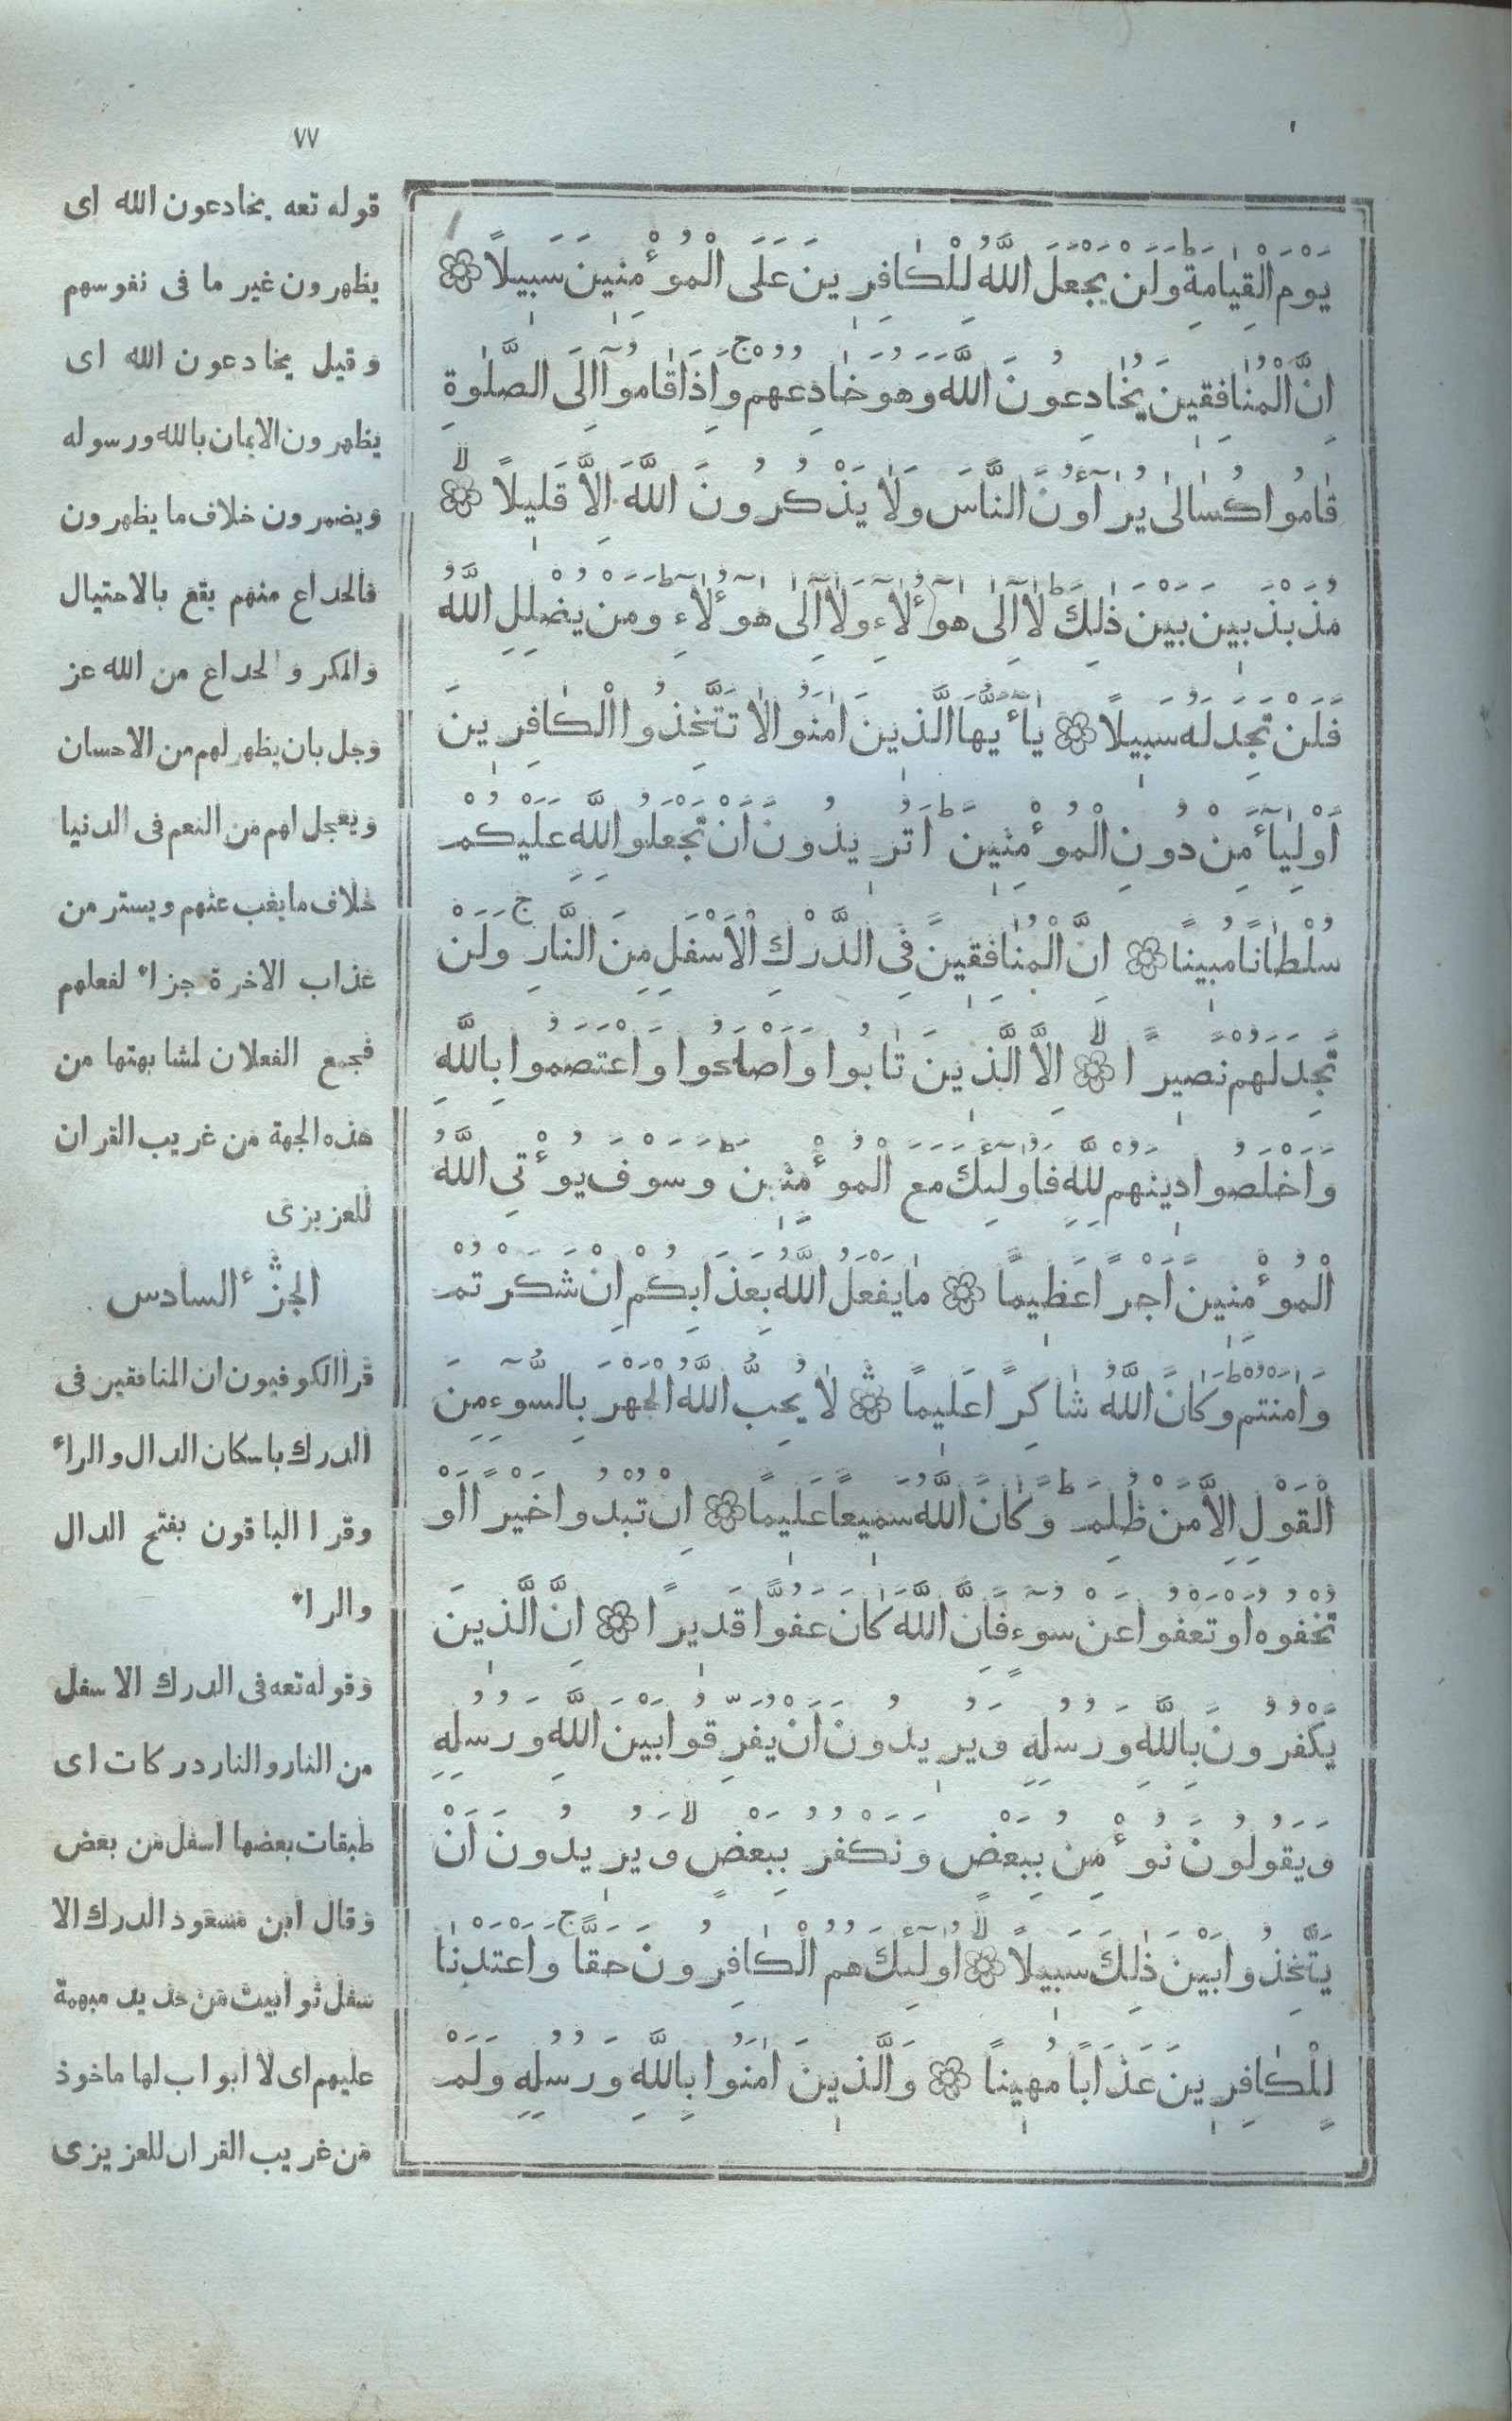 ٧٧
يَوْمَ الْقِيٰامَةِ وَلَنْ يَجْعَلَ اللَّهُ لِلْكٰافِرِينَ عَلَى الْمُؤْمِنِينَ سَبِيلًا
اِنَّ الْمُنٰافِقِينَ يُخٰادِعُونَ اللَّهَ وَهُوَ خٰادِعُهُمْ ج وَاِذٰا قٰامُوٓا اِلَى الصَّلٰوةِ
قٰامُوا كُسٰالىٰ يُرٰآؤُنَ النَّاسَ وَلٰا يَذْكُرُونَ اللَّهَ اِلَّا قَلِيلًا لا
مُذَبْذَبِينَ بَيْنَ ذٰلِكَ ط لٰآ اِلىٰ هٰٓؤُلٰآءِ وَلٰآ اِلىٰ هٰٓؤُلٰآءِ ط وَمَنْ يُضْلِلِ اللَّهُ
فَلَنْ تَجِدَ لَهُ سَبِيلًا يٰٓأَيُّهَا الَّذِينَ اٰمَنُوا لٰا تَتَّخِذُوا الْكٰافِرِينَ
اَوْلِيٰٓأَ مِنْ دُونِ الْمُؤْمِنِينَ ط اَتُرِيدُونَ اَنْ تَجْعَلُوا لِلَّهِ عَلَيْكُمْ
سُلْطٰانًا مُبِينًا اِنَّ الْمُنٰافِقِينَ فِي الدَّرْكِ الْاَسْفَلِ مِنَ النَّارِ ج وَلَنْ
تَجِدَ لَهُمْ نَصِيرًا لا اِلَّا الَّذِينَ تٰابُوا وَاَصْلَحُوا وَاعْتَصَمُوا بِاللَّهِ
وَاَخْلَصُوا دِينَهُمْ لِلَّهِ فَاُولٰٓئِكَ مَعَ الْمُؤْمِنِينَ ط وَسَوْفَ يُؤْتِي اللَّهُ
الْمُؤْمِنِينَ اَجْرًا عَظِيمًا مٰا يَفْعَلُ اللَّهُ بِعَذَابِكُمْ اِنْ شَكَرْتُمْ
وَاٰمَنْتُمْ ط وَكٰانَ اللَّهُ شٰاكِرًا عَلِيمًا لٰا يُحِبُّ اللَّهُ الْجَهْرَ بِالسُّوٓءِ مِنَ
الْقَوْلِ اِلَّا مَنْ ظُلِمَ ط وَكٰانَ اللَّهُ سَمِيعًا عَلِيمًا اِنْ تُبْدُوا خَيْرًا اَوْ
تُخْفُوهُ اَوْ تَعْفُوا عَنْ سُوٓءٍ فَاِنَّ اللَّهَ كٰانَ عَفُوًّا قَدِيرًا اِنَّ الَّذِينَ
يَكْفُرُونَ بِاللَّهِ وَرُسُلِهِ وَيُرِيدُونَ اَنْ يُفَرِّقُوا بَيْنَ اللَّهِ وَرُسُلِهِ
وَيَقُولُونَ نُؤْمِنُ بِبَعْضٍ وَنَكْفُرُ بِبَعْضٍ لا وَيُرِيدُونَ اَنْ
يَتَّخِذُوا بَيْنَ ذٰلِكَ سَبِيلًا لا اُولٰٓئِكَ هُمُ الْكٰافِرُونَ حَقًّا ج وَاَعْتَدْنٰا
لِلْكٰافِرِينَ عَذَابًا مُهِينًا وَالَّذِينَ اٰمَنُوا بِاللَّهِ وَرُسُلِهِ وَلَمْ
قوله تعه يخادعون الله اى
يظهرون غير ما فى نفوسهم
وقيل يخادعون الله اى
يظهرون الايمان بالله ورسوله
ويضمرون خلاف ما يظهرون
فالخداع منهم يقع بالاحتيال
والمكر والخداع من الله عز
وجل بان يظهر لهم من الاحسان
ويعجل لهم من النعم فى الدنيا
خلاف ما يغيب عنهم ويستر من
عذاب الاخرة جزاء لفعلهم
فجمع الفعلان لمشابهتها من
هذه الجهة من غريب القران
للعزيزى
الجزٔ السادس
قرا الكوفيون ان المنافقين فى
الدرك باسكان الدال والراء
وقرا الباقون بفتح الدال
والراء
وقوله تعه فى الدرك الاسفل
من النار والنار دركات اى
طبقات بعضها اسفل من بعض
وقال ابن مسعود الدرك الا
سفل ثوابيت من حديد مبهمة
عليهم اى لا ابواب لها ماخوذ
من غريب القران للعزيزى